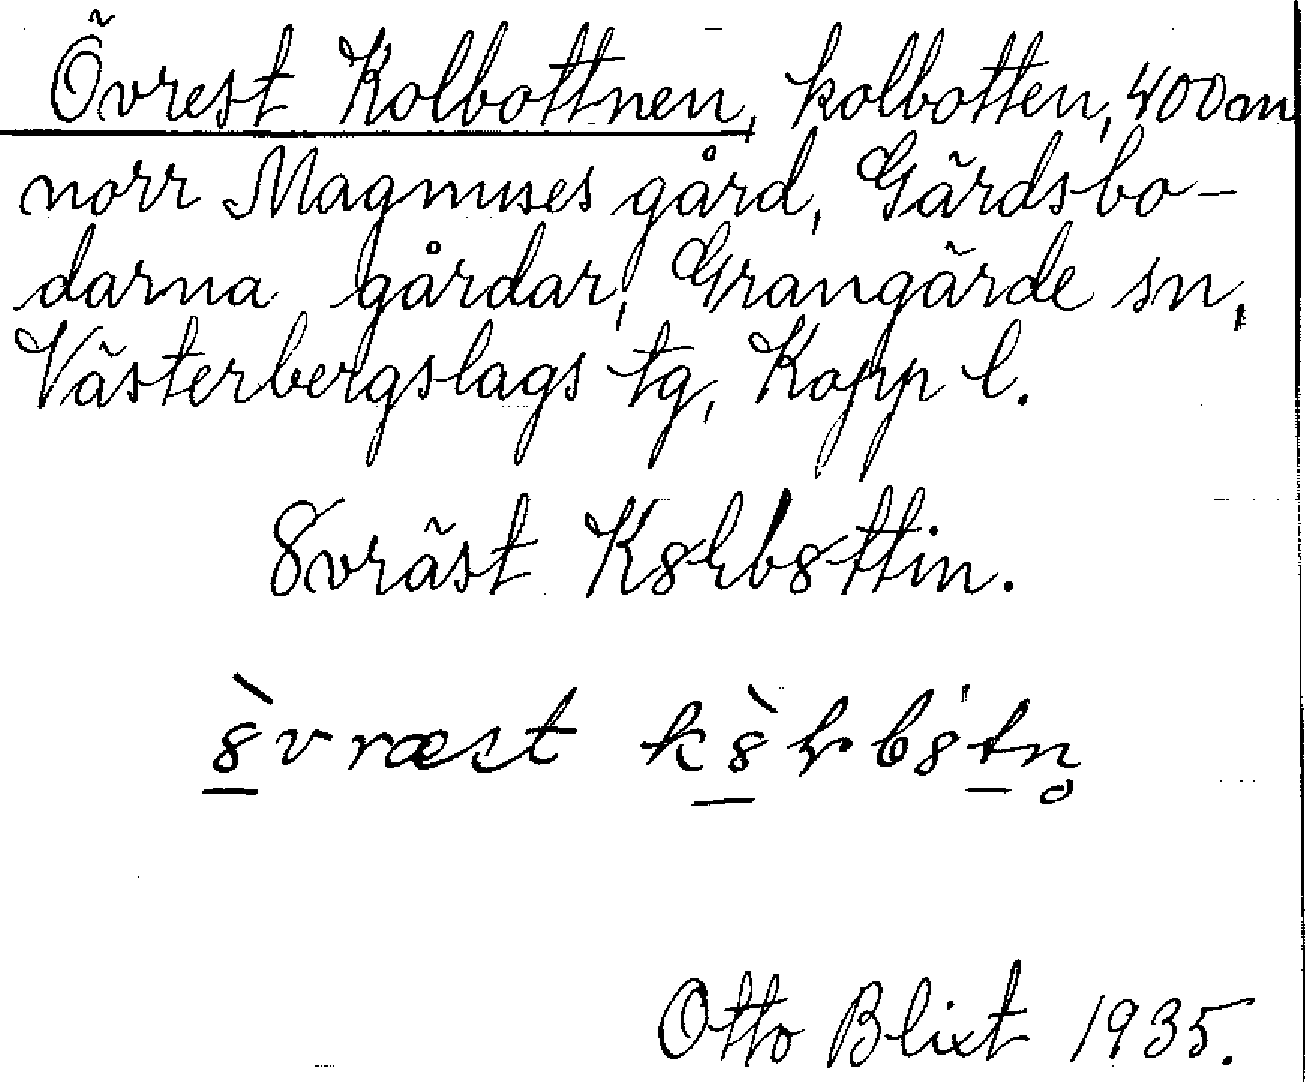 Övrest Kolbottnen, kolbotten, 400 m
norr Magnuses gård, Gärdsbo-
darna gårdar, Grangärde sn,
Västerbergslags tg, Kopp l.
8vräst K8ɽb8ttin.
8̀vræst k8̀ɽb8tn̥
Otto Blixt 1935.